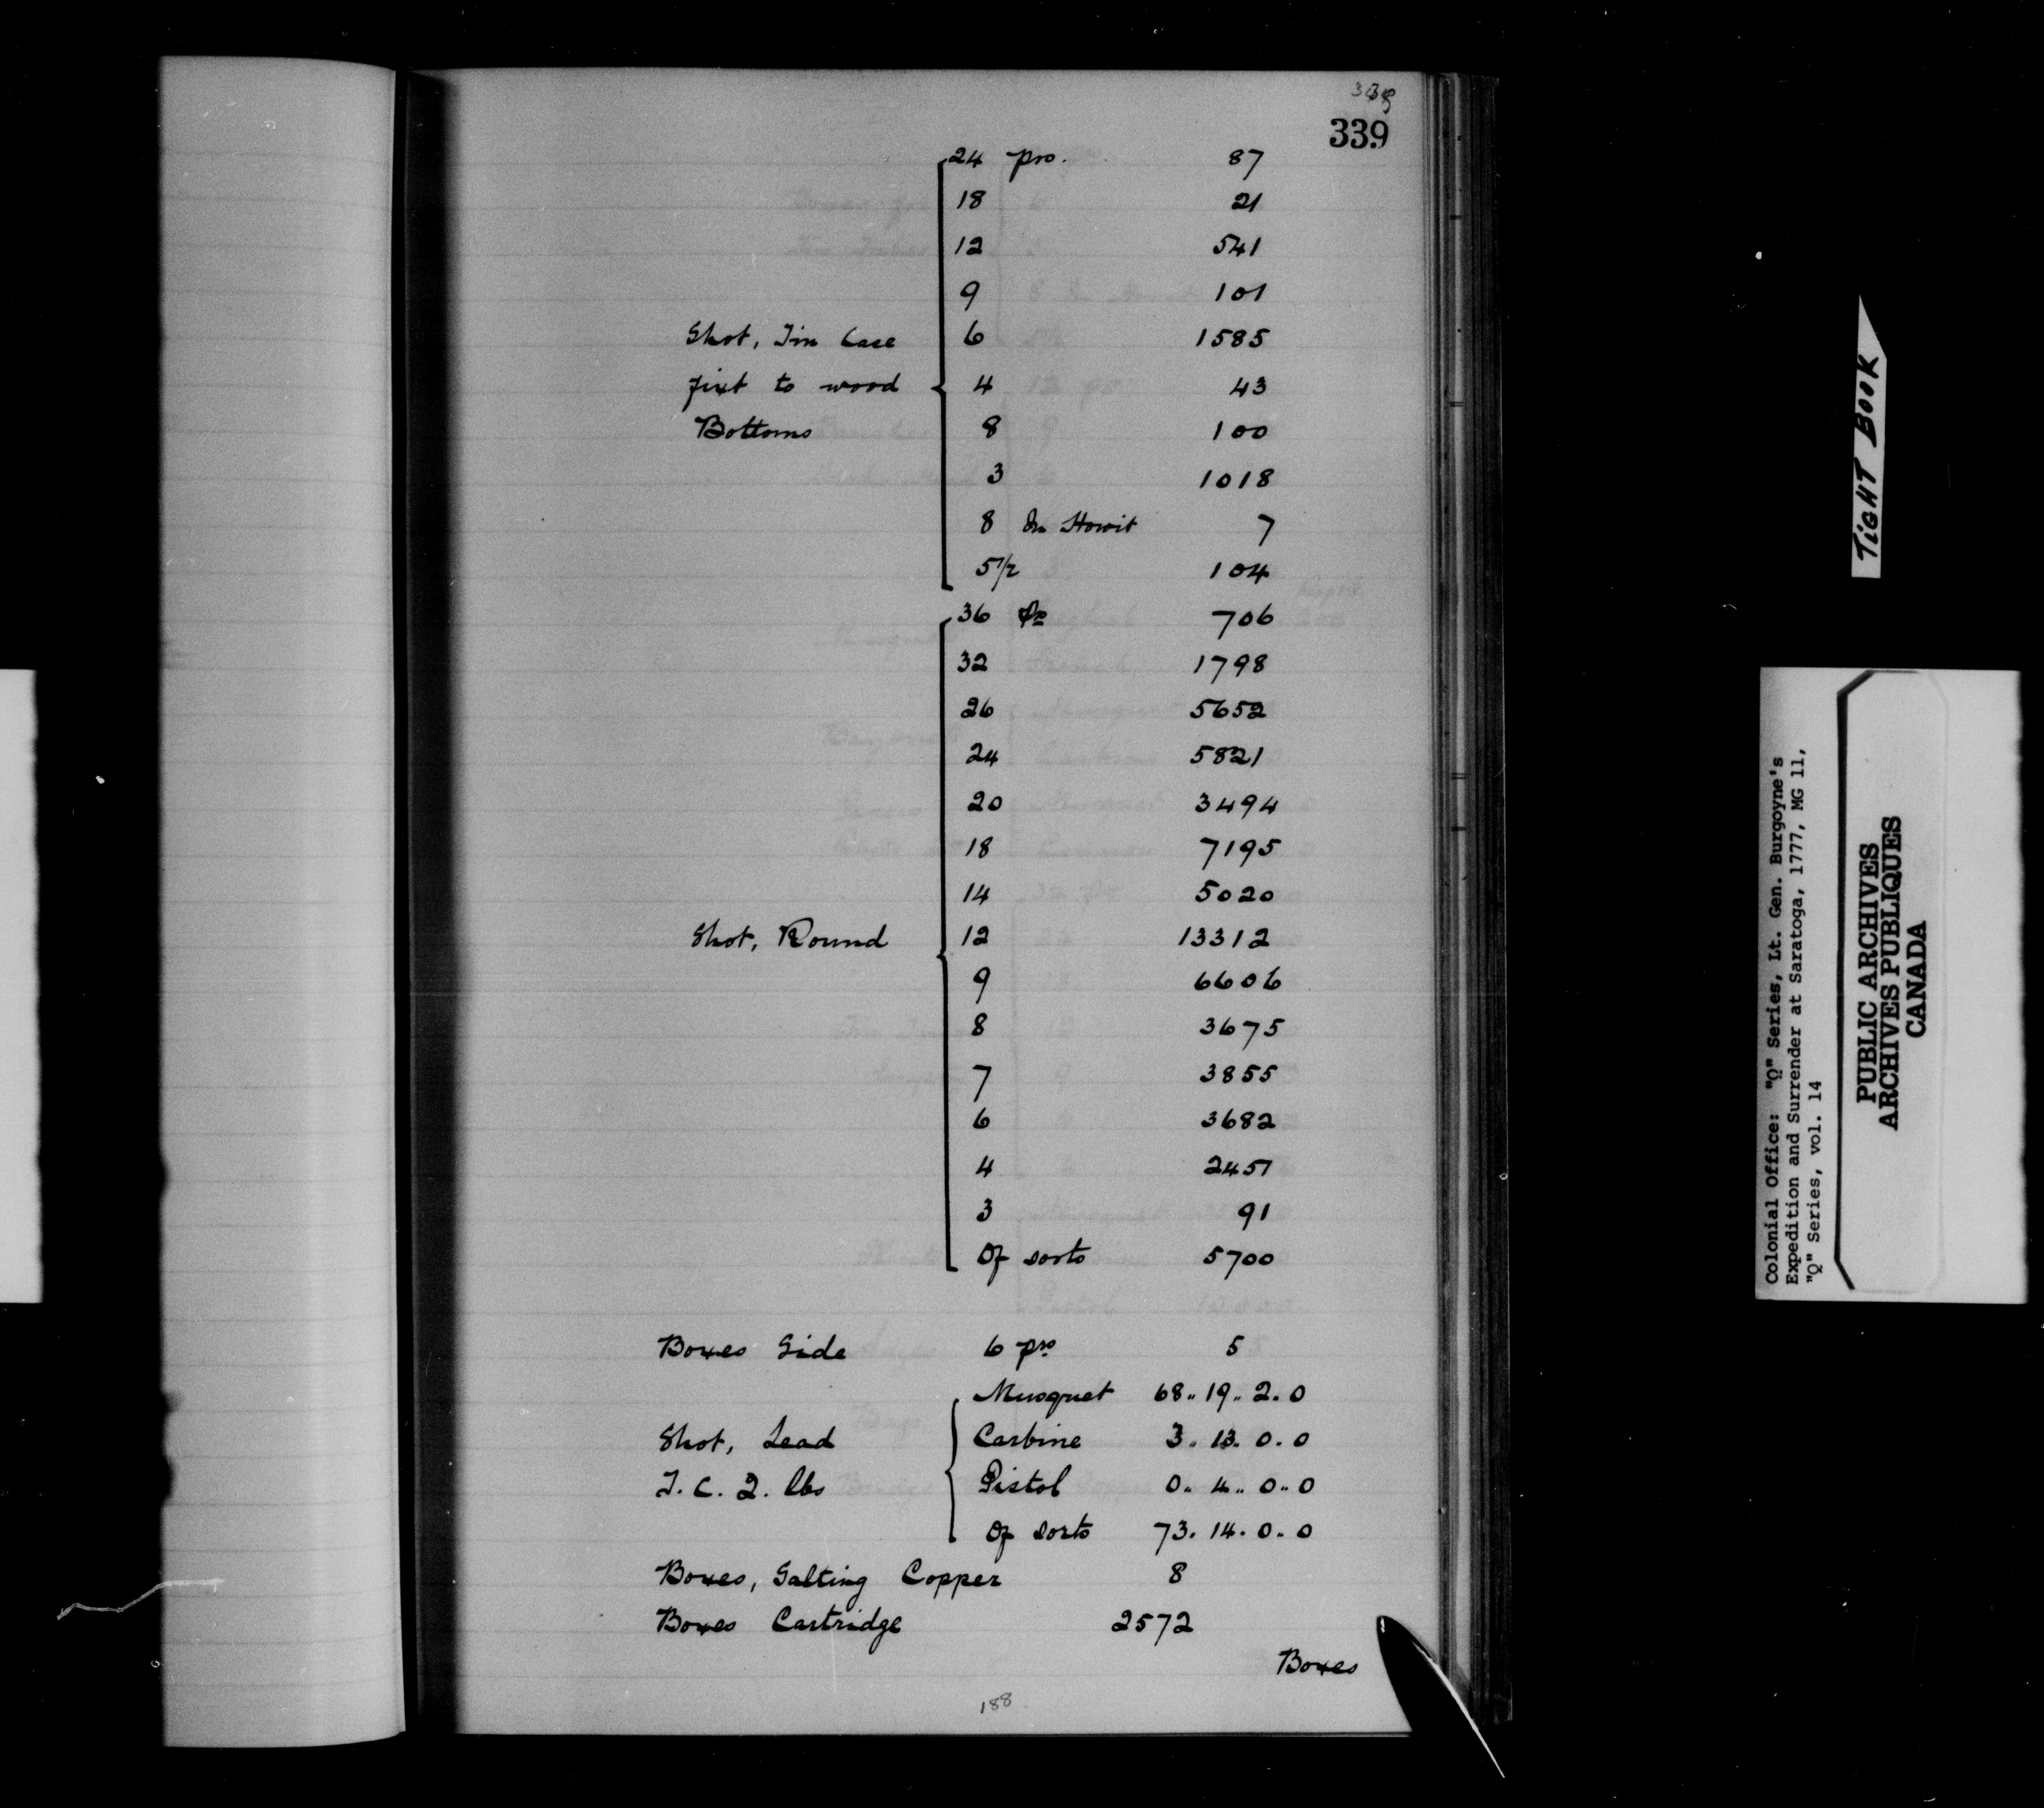 339
24 prs. 87
18 21
12 541
9 101
Shot, Tin Case 6 1585
fixt to wood 4 43
Bottoms 8 100
3 1018
8 In Howit 7
5 1/2 104
36 Pr 706
32 1798
26 5652
24 5821
20 3494
18 7195
14 5020
Shot, Round 12 13312
9 6606
8 3675
7 3855
6 3682
4 2451
3 91
Of sorts 5700
Boxes Side 6 prs 5
Musquet 68.. 19.. 2. 0
Shot, Lead Carbine 3. 13. 0. 0
T. C. 2. lbs Pistol 0.. 4.. 0.. 0
Of sorts 73. 14. 0. 0
Boxes, Salting Copper 8
Boxes Cartridge 2572
Boxes
188
TiGHT BOOK
Colonial Office: "Q" Series, Lt. Gen. Burgoyne's
Expedition and Surrender at Saratoga, 1777, MG 11,
"Q" Series, vol. 14
PUBLIC ARCHIVES
ARCHIVES PUBLIQUES
CANADA